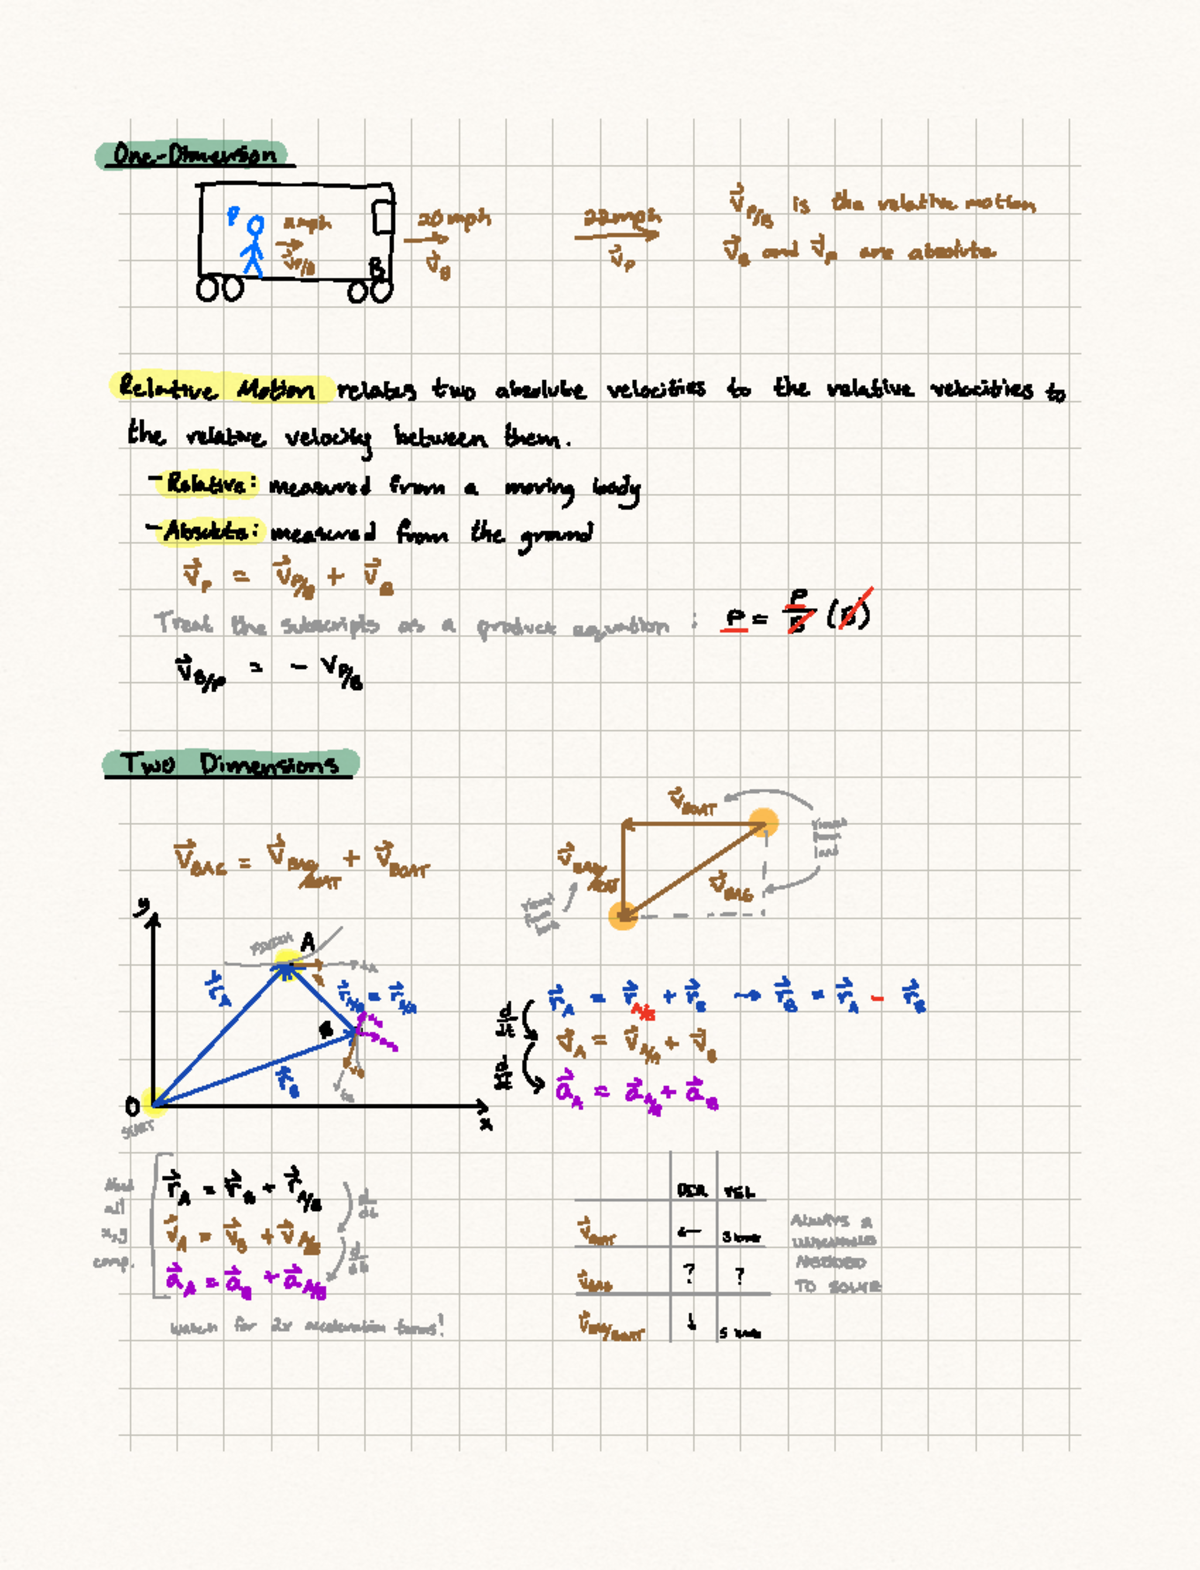 One-Dimension
P
2mph
v⃗P/B
B
20mph
v⃗B
22mph
v⃗P
v⃗P/B is the relative motion
v⃗B and v⃗P are absolute
Relative Motion relates two absolute velocities to the relative velocities to
the relative velocity between them.
- Relative: measured from a moving body
- Absolute: measured from the ground
v⃗P = v⃗P/B + v⃗B
Treat the subscripts as a product equation : P = P/B (B)
v⃗B/P = - vP/B
Two Dimensions
v⃗BAG = v⃗BAG/BOAT + v⃗BOAT
v⃗BOAT
viewed from land
v⃗BAG/BOAT
v⃗BAG
viewed from
y
A
r⃗A
B
r⃗B
O
START
x
d/dt
d/dt
r⃗A = r⃗A/B + r⃗B → r⃗B = r⃗A - r⃗B
v⃗A = v⃗A/B + v⃗B
a⃗A = a⃗A/B + a⃗B
Need all x,y comp.
r⃗A = r⃗B + r⃗A/B
v⃗A = v⃗B + v⃗A/B
a⃗A = a⃗B + a⃗A/B
d/dt
d/dt
Watch for 2x acceleration terms!
DIR. VEL.
v⃗BOAT ←
v⃗BAG ? ?
v⃗BAG/BOAT ↓
ALWAYS 2
UNKNOWNS
NEEDED
TO SOLVE